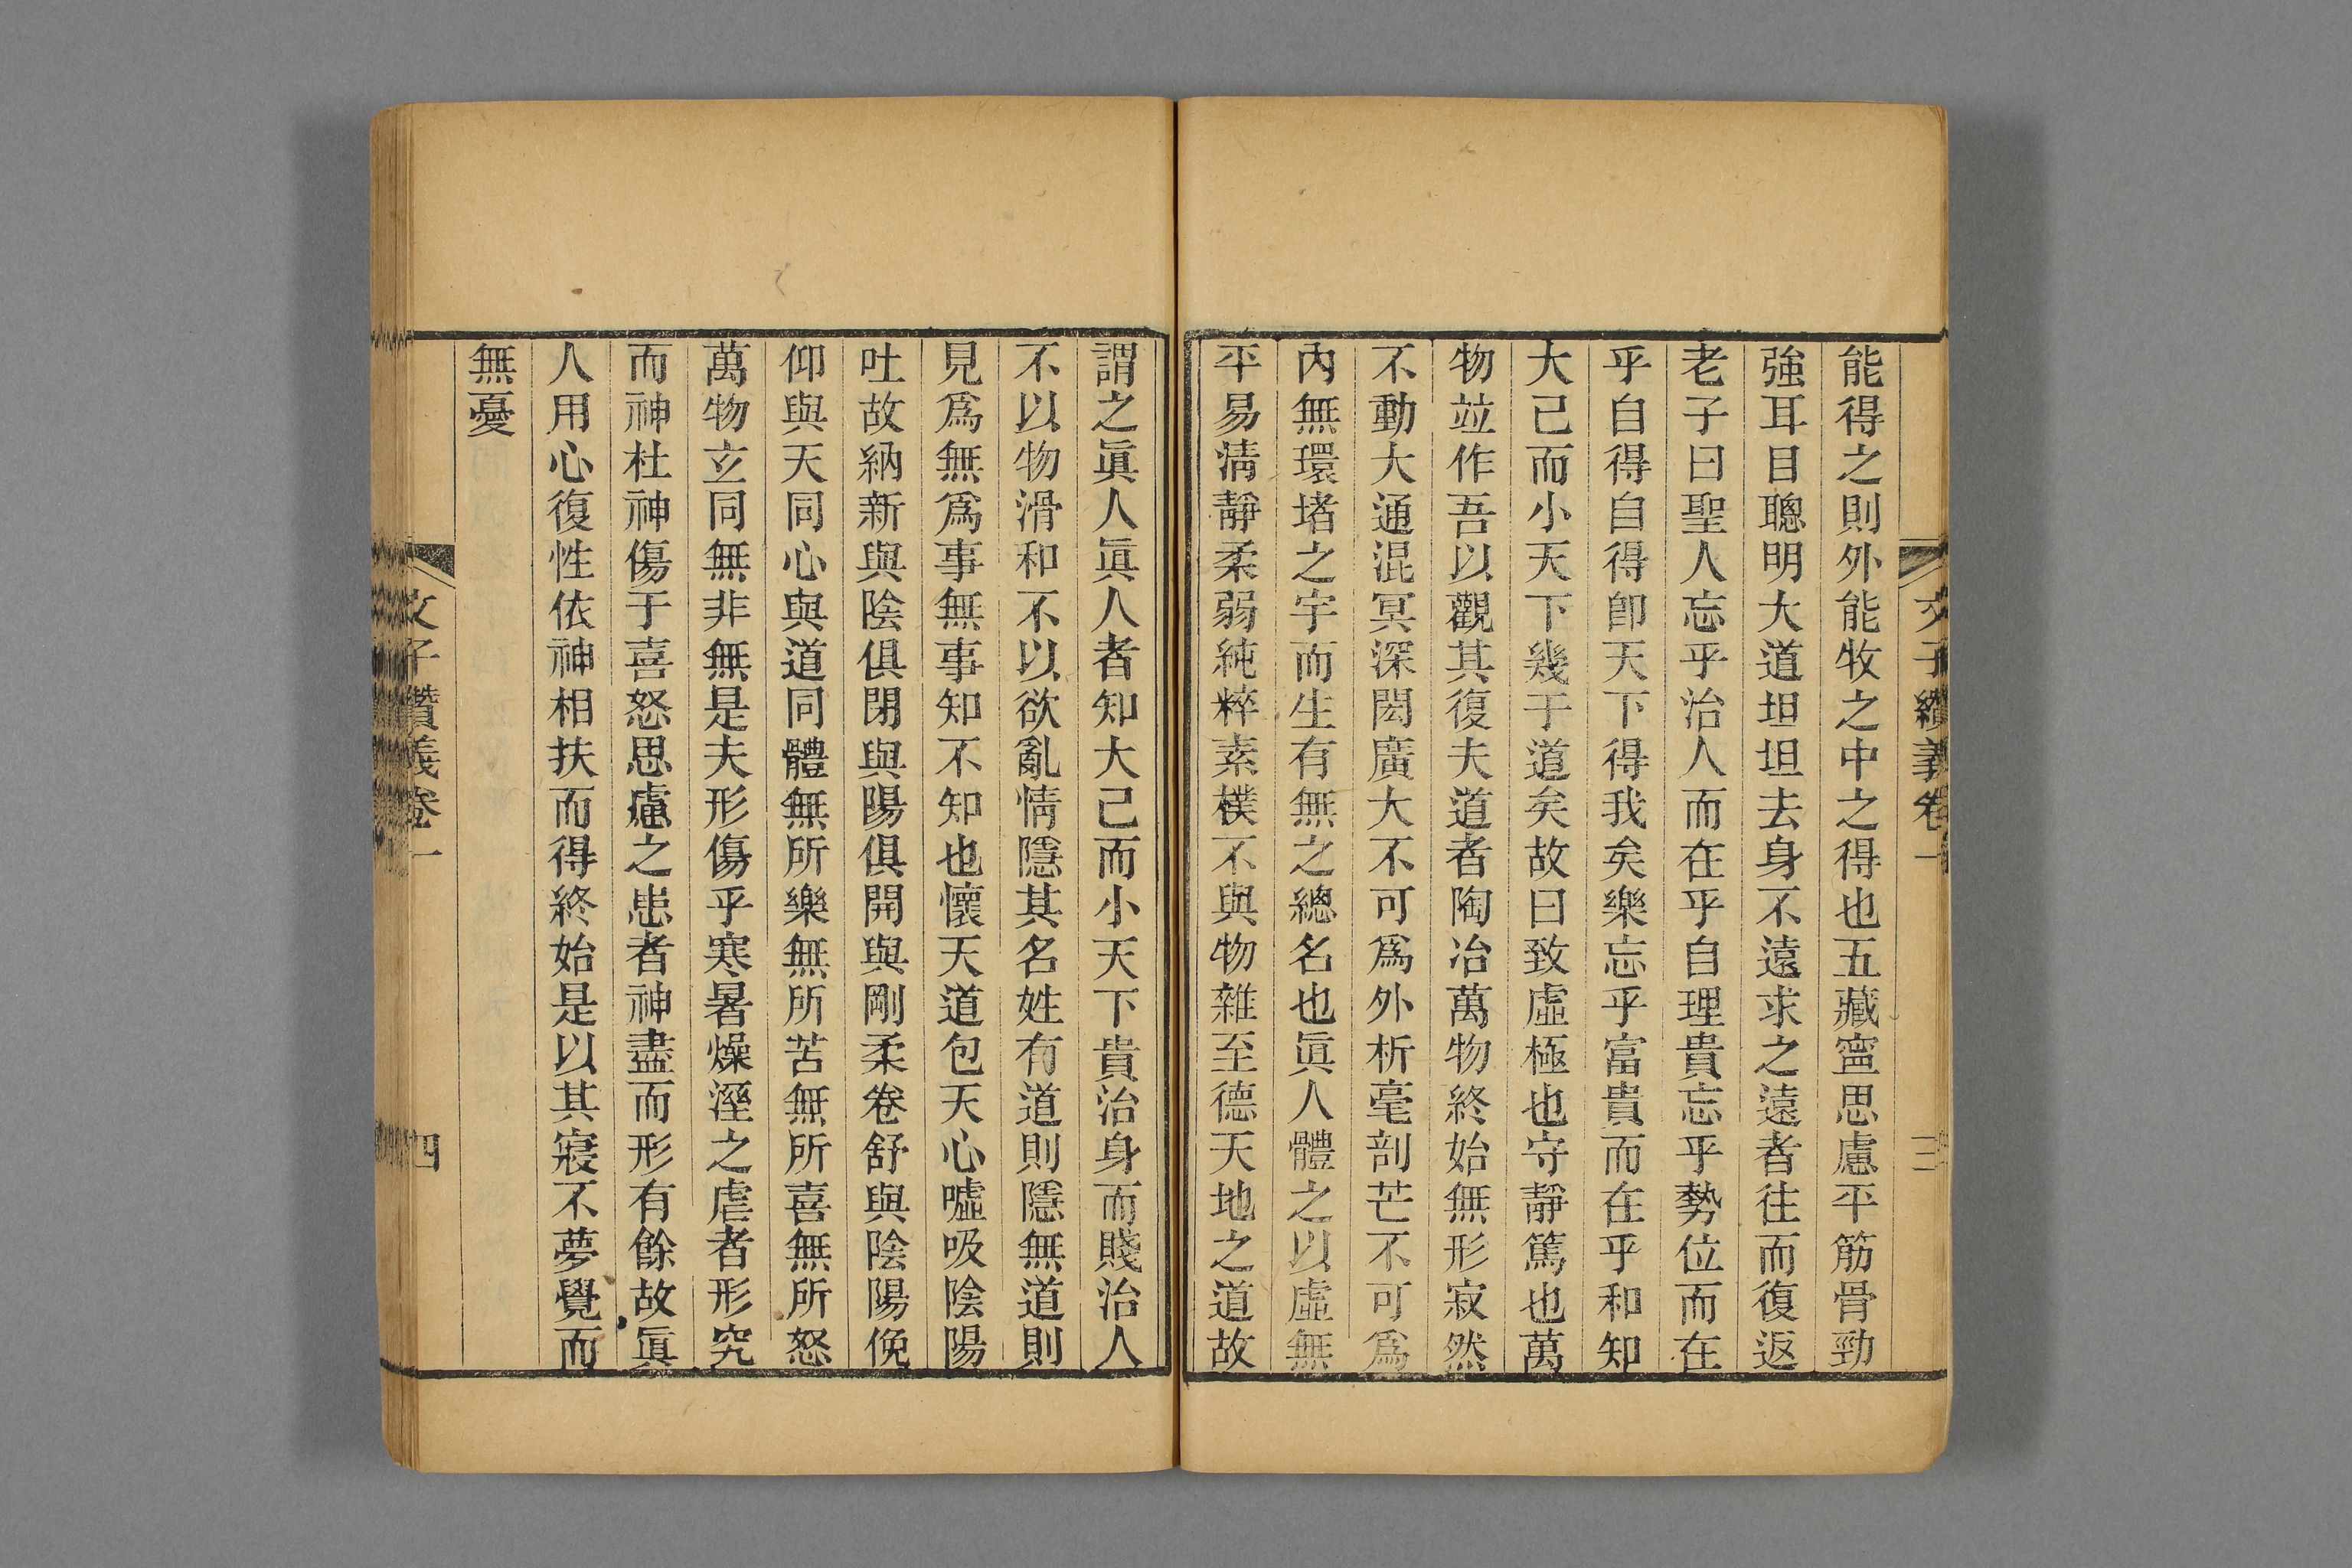 文子纘義卷一
三
能得之則外能牧之中之得也五藏寍思慮平筋骨勁
強耳目聰明大道坦坦去身不遠求之遠者往而復返
老子曰聖人忘乎治人而在乎自理貴忘乎勢位而在
乎自得自得卽天下得我矣樂忘乎富貴而在乎和知
大己而小天下幾于道矣故曰致虛極也守靜篤也萬
物竝作吾以觀其復夫道者陶冶萬物終始無形寂然
不動大通混冥深閎廣大不可爲外析毫剖芒不可爲
內無環堵之宇而生有無之總名也眞人體之以虛無
平易淸靜柔弱純粹素樸不與物雜至德天地之道故
謂之眞人眞人者知大己而小天下貴治身而賤治人
不以物滑和不以欲亂情隱其名姓有道則隱無道則
見爲無爲事無事知不知也懷天道包天心噓吸陰陽
吐故納新與陰俱閉與陽俱開與剛柔卷舒與陰陽俛
仰與天同心與道同體無所樂無所苦無所喜無所怒
萬物玄同無非無是夫形傷乎寒暑燥溼之虐者形究
而神杜神傷于喜怒思慮之患者神盡而形有餘故眞
人用心復性依神相扶而得終始是以其寢不夢覺而
無憂
文子纘義卷一
四